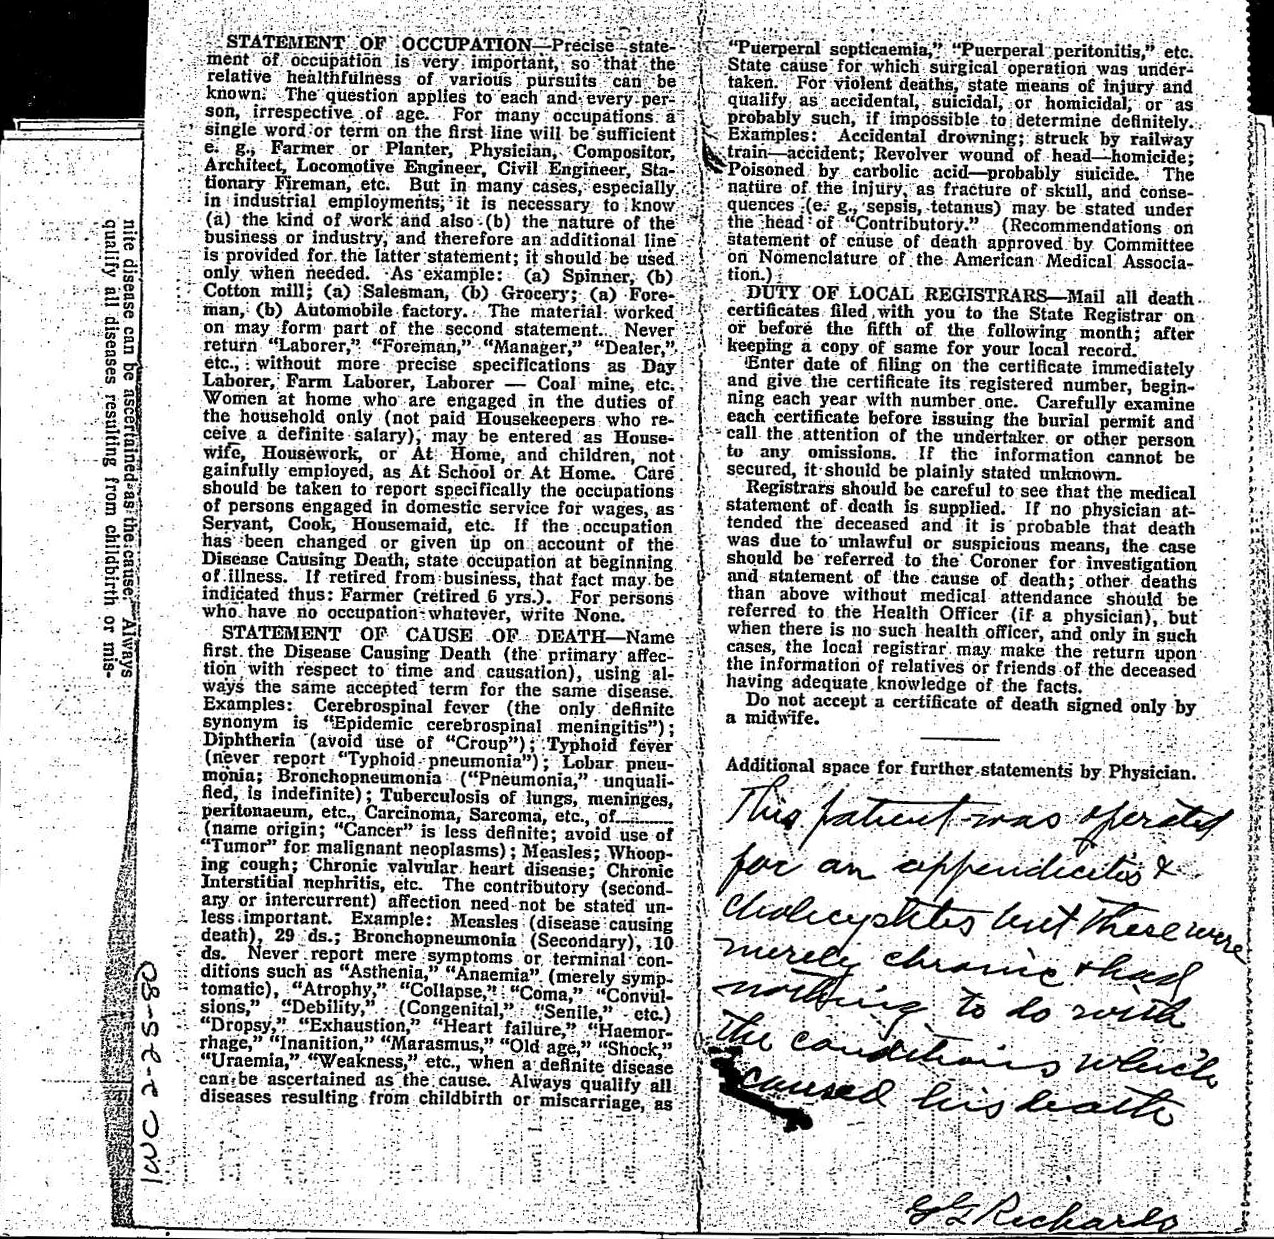 STATEMENT OF OCCUPATION—Precise state-
ment of occupation is very important, so that the
relative healthfulness of various pursuits can be
known. The question applies to each and every per-
son, irrespective of age. For many occupations a
single word or term on the first line will be sufficient
e. g., Farmer or Planter, Physician, Compositor,
Architect, Locomotive Engineer, Civil Engineer, Sta-
tionary Fireman, etc. But in many cases, especially
in industrial employments, it is necessary to know
(a) the kind of work and also (b) the nature of the
business or industry, and therefore an additional line
is provided for the latter statement; it should be used
only when needed. As example: (a) Spinner, (b)
Cotton mill; (a) Salesman, (b) Grocery; (a) Fore-
man, (b) Automobile factory. The material worked
on may form part of the second statement. Never
return "Laborer," "Foreman," "Manager," "Dealer,"
etc., without more precise specifications as Day
Laborer, Farm Laborer, Laborer — Coal mine, etc.
Women at home who are engaged in the duties of
the household only (not paid Housekeepers who re-
ceive a definite salary), may be entered as House-
wife, Housework, or At Home, and children, not
gainfully employed, as At School or At Home. Care
should be taken to report specifically the occupations
of persons engaged in domestic service for wages, as
Servant, Cook, Housemaid, etc. If the occupation
has been changed or given up on account of the
Disease Causing Death, state occupation at beginning
of illness. If retired from business, that fact may be
indicated thus: Farmer (retired 6 yrs.). For persons
who have no occupation whatever, write None.
STATEMENT OF CAUSE OF DEATH—Name
first the Disease Causing Death (the primary affec-
tion with respect to time and causation), using al-
ways the same accepted term for the same disease.
Examples: Cerebrospinal fever (the only definite
synonym is "Epidemic cerebrospinal meningitis");
Diphtheria (avoid use of "Croup"); Typhoid fever
(never report "Typhoid pneumonia"); Lobar pneu-
monia; Bronchopneumonia ("Pneumonia," unquali-
fied, is indefinite); Tuberculosis of lungs, meninges,
peritonaeum, etc., Carcinoma, Sarcoma, etc., of........
(name origin; "Cancer" is less definite; avoid use of
"Tumor" for malignant neoplasms); Measles; Whoop-
ing cough; Chronic valvular heart disease; Chronic
Interstitial nephritis, etc. The contributory (second-
ary or intercurrent) affection need not be stated un-
less important. Example: Measles (disease causing
death), 29 ds.; Bronchopneumonia (Secondary), 10
ds. Never report mere symptoms or terminal con-
ditions such as "Asthenia," "Anaemia" (merely symp-
tomatic), "Atrophy," "Collapse," "Coma," "Convul-
sions," "Debility," (Congenital," "Senile," etc.)
"Dropsy," "Exhaustion," "Heart failure," "Haemor-
rhage," "Inanition," "Marasmus," "Old age," "Shock,"
"Uraemia," "Weakness," etc., when a definite disease
can be ascertained as the cause. Always qualify all
diseases resulting from childbirth or miscarriage, as
"Puerperal septicaemia," "Puerperal peritonitis," etc.
State cause for which surgical operation was under-
taken. For violent deaths, state means of injury and
qualify as accidental, suicidal, or homicidal, or as
probably such, if impossible to determine definitely.
Examples: Accidental drowning; struck by railway
train—accident; Revolver wound of head—homicide;
Poisoned by carbolic acid—probably suicide. The
nature of the injury, as fracture of skull, and conse-
quences (e. g., sepsis, tetanus) may be stated under
the head of "Contributory." (Recommendations on
statement of cause of death approved by Committee
on Nomenclature of the American Medical Associa-
tion.)
DUTY OF LOCAL REGISTRARS—Mail all death
certificates filed with you to the State Registrar on
or before the fifth of the following month; after
keeping a copy of same for your local record.
Enter date of filing on the certificate immediately
and give the certificate its registered number, begin-
ning each year with number one. Carefully examine
each certificate before issuing the burial permit and
call the attention of the undertaker or other person
to any omissions. If the information cannot be
secured, it should be plainly stated unknown.
Registrars should be careful to see that the medical
statement of death is supplied. If no physician at-
tended the deceased and it is probable that death
was due to unlawful or suspicious means, the case
should be referred to the Coroner for investigation
and statement of the cause of death; other deaths
than above without medical attendance should be
referred to the Health Officer (if a physician), but
when there is no such health officer, and only in such
cases, the local registrar may make the return upon
the information of relatives or friends of the deceased
having adequate knowledge of the facts.
Do not accept a certificate of death signed only by
a midwife.
Additional space for further statements by Physician.
This patient was operated
for an appendicitis &
cholecystites but these were
merely chronic & had
nothing to do with
the conditions which
caused his death
G G Richards
nite disease can be ascertained as the cause. Always
qualify all diseases resulting from childbirth or mis-
IWC 2-25-80